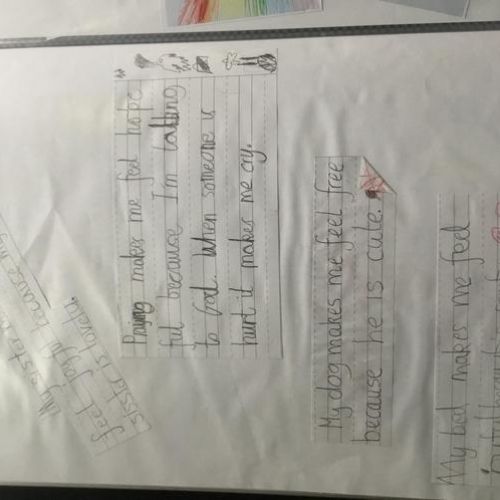 My sister
feel joyful because my
sister is lovely.
Praying makes me feel hope
ful because I'm talking
to God. When someone is
hurt it makes me cry.
My dog makes me feel free
because he is cute.
My bed makes me feel